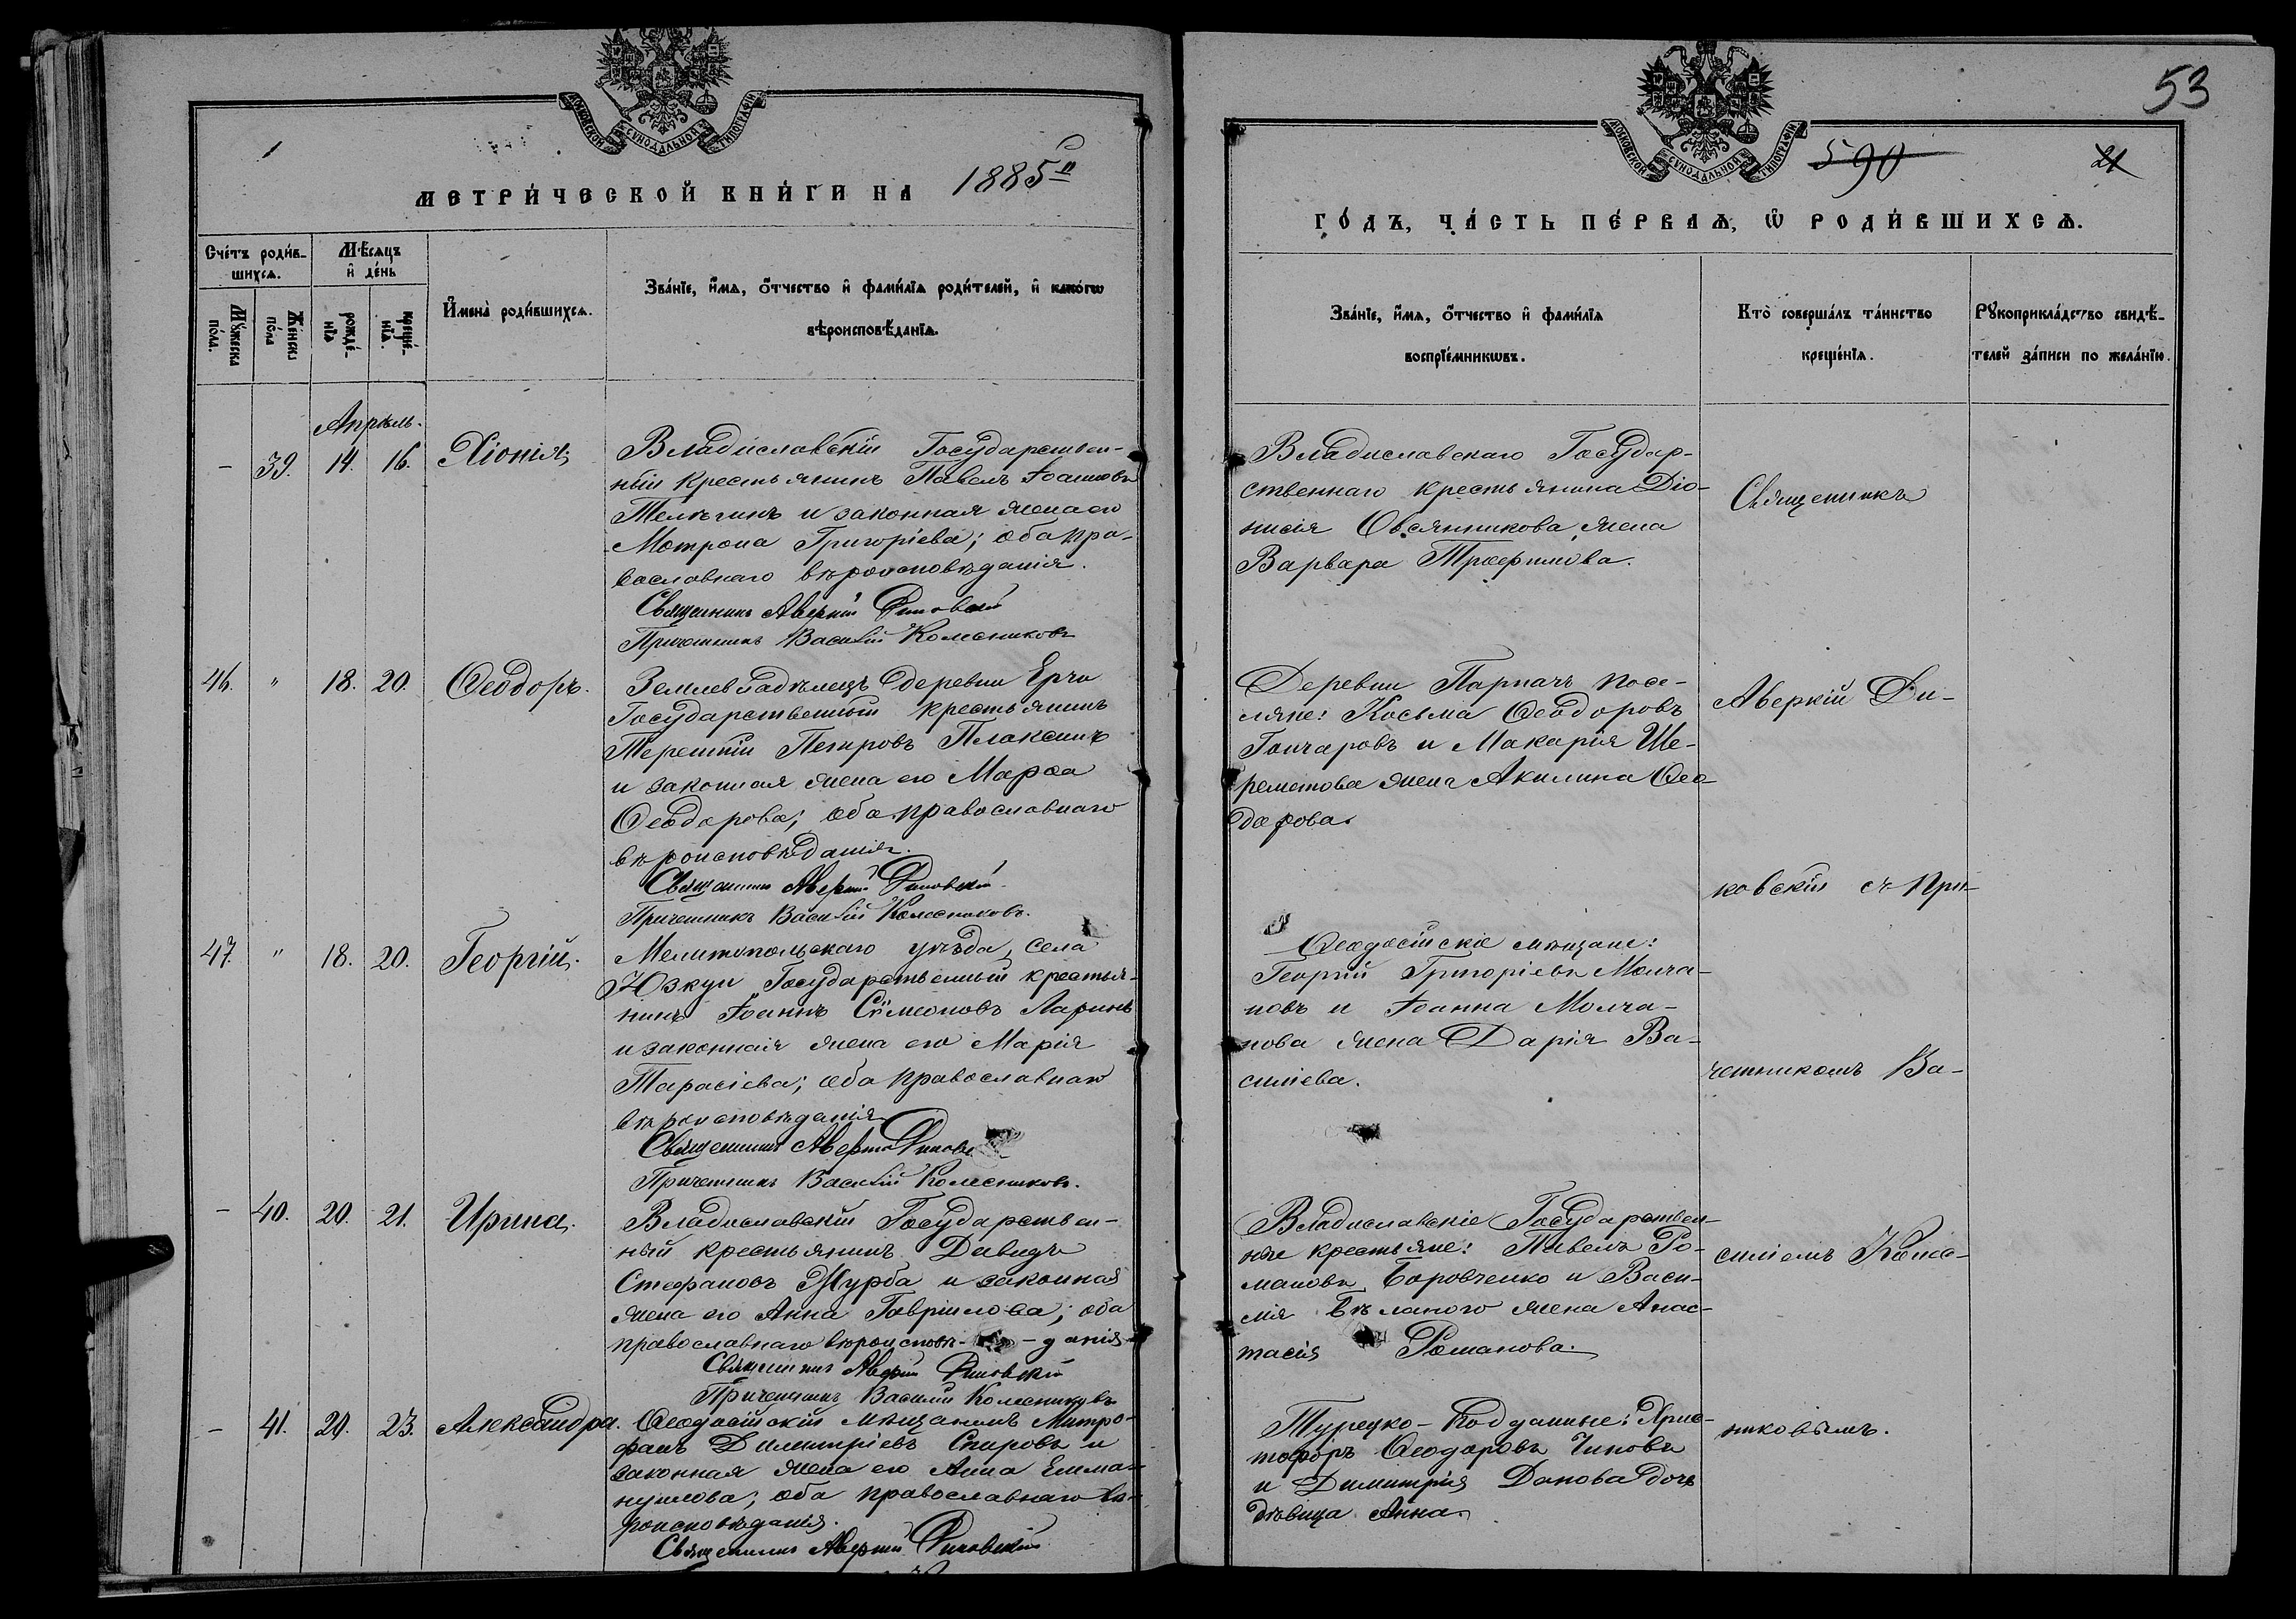 МОСКОВСКОЙ СѴНОДАЛЬНОЙ ТИПОГРАФІИ
МЕТРИ́ЧЕСКОЙ КНИ́ГИ НА 1885й
Сче́тъ роди́в-
шихсѧ.
Мѣ́сѧцъ
и҆ де́нь
Мꙋ́жеска
по́ла.
Же́нска
по́ла
рожде́-
нїѧ
креще́-
нїѧ.
И҆мена̀ роди́вшихсѧ.
Зва́нїе, и҆́мѧ, ѻ҆́тчество и҆ фами́лїѧ роди́телей, и҆ како́гѡ
вѣроисповѣ́данїѧ.
Апрѣль.
– 39. 14. 16. Хіонія.
Владиславскій Государствен-
ный крестьянинъ Павелъ Іоанновъ
Телѣгинъ и законная жена его
Мотрона Григоріева; оба пра-
вославнаго вѣроисповѣданія.
Священникъ Аверкій Диковскій
Причетникъ Василій Колесниковъ
46. " 18. 20. Ѳеодоръ.
Землевладѣлецъ деревни Ерчи
Государственный крестьянинъ
Терентій Петровъ Плаксинъ
и законная жена его Марфа
Ѳеодорова; оба православнаго
вѣроисповѣданія.
Священникъ Аверкій Диковскій
Причетникъ Василій Колесниковъ.
47. " 18. 20. Георгій.
Мелитопольскаго уѣзда, села
Юзкуи Государственный крестья-
нинъ Іоаннъ Сѵмеоновъ Ларинъ
и законная жена его Марія
Тарасіева; оба православнаго
вѣроисповѣданія
Священникъ Аверкій
Причетникъ Василій Колесниковъ.
– 40. 20. 21. Ирина.
Владиславскій Государствен-
ный крестьянинъ Давидъ
Стефановъ Журба и законная
жена его Анна Гавріилова; оба
православнаго вѣроисповѣ- – данія
Священникъ Аверкій Диковскій
Причетникъ Василій Колесниковъ
– 41. 20. 23. Александра.
Ѳеодосійскій мѣщанинъ Митро-
фанъ Димитріевъ Спировъ и
законная жена его Анна Емма-
нуилова; оба православнаго вѣ-
роисповѣданія.
Священникъ Аверкій Диковскій
53
590
21
МОСКОВСКОЙ СѴНОДАЛЬНОЙ ТИПОГРАФІИ
ГО́ДЪ, ЧА́СТЬ ПЕ́РВАѦ, Ѡ҆ РОДИ́ВШИХСѦ.
Зва́нїе, и҆́мѧ, ѻ҆́тчество и҆ фами́лїѧ
воспрїе́мникѡвъ.
Кто̀ соверша́лъ та́инство
креще́нїѧ.
Рꙋкоприкла́дство свидѣ́-
телей за́писи по жела́нїю.
Владиславскаго Государ-
ственнаго крестьянина Діо-
нисія Овсянникова жена
Варвара Трофимова.
Деревни Парпачъ посе-
ляне: Косьма Ѳеодоровъ
Гончаровъ и Макарія Ше-
реметова жена Акилина Ѳео-
дорова.
Ѳеодосійскіе мѣщане:
Георгій Григоріевъ Молча-
новъ и Іоанна Молча-
нова жена Дарія Ва-
силіева.
Владиславскіе Государствен-
ные крестьяне: Павелъ Ро-
мановъ Боровченко и Васи-
лія Бѣланого жена Анас-
тасія Романова.
Турецко-Подданные: Хрис-
тофоръ Ѳеодоровъ Чиновъ
и Димитрія Данова дочь
дѣвица Анна.
Священникъ
Аверкій Ди-
ковскій съ при-
четникомъ Ва-
силіемъ Колес-
никовымъ.